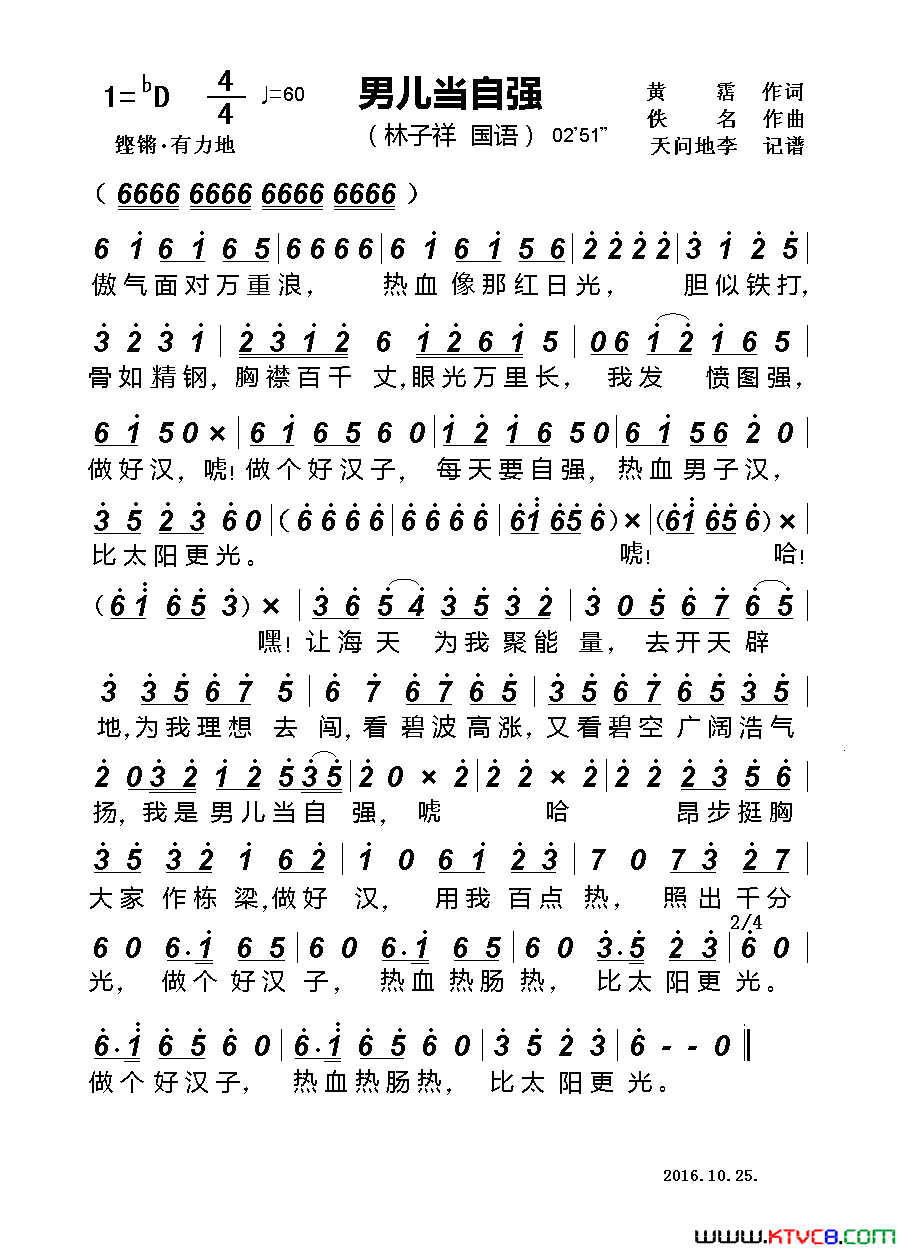 1=ᵇD 4/4 ♩=60 男儿当自强 黄 霑 作词
（林子祥 国语） 02'51" 佚 名 作曲
铿锵·有力地 天问地李 记谱
（ 6666 6666 6666 6666 ）
6 i 6 i 6 5 | 6 6 6 6 | 6 i 6 i 5 6 | 2̇ 2̇ 2̇ 2̇ | 3̇ i 2̇ 5̇ |
傲气面对万重浪， 热血像那红日光， 胆似铁打，
3̇ 2̇ 3̇ i | 2̇ 3̇ i 2̇ 6 i 2̇ 6 i 5 | 0 6 i 2̇ i 6 5 |
骨如精钢，胸襟百千 丈，眼光万里长， 我发 愤图强，
6 i 5 0 × | 6 i 6 5 6 0 | i 2̇ i 6 5 0 | 6 i 5 6 2̇ 0 |
做好汉，唬！做个好汉子，每天要自强，热血男子汉，
3̇ 5̇ 2̇ 3̇ 6̇ 0 | （ 6̇ 6̇ 6̇ 6̇ | 6̇ 6̇ 6̇ 6̇ | 6̇ i̇ 6̇ 5̇ 6̇ ） × | （ 6̇ i̇ 6̇ 5̇ 6̇ ） × |
比太阳更光。 唬！ 哈！
（ 6̇ i̇ 6̇ 5̇ 3̇ ） × | 3̇ 6̇ 5̇ 4̇ 3̇ 5̇ 3̇ 2̇ | 3̇ 0 5̇ 6̇ 7̇ 6̇ 5̇ |
嘿！让海天 为我聚能 量，去开天辟
3̇ 3̇ 5̇ 6̇ 7̇ 5̇ | 6̇ 7̇ 6̇ 7̇ 6̇ 5̇ | 3̇ 5̇ 6̇ 7̇ 6̇ 5̇ 3̇ 5̇ |
地，为我理想 去 闯，看 碧波高涨，又看碧空 广阔浩气
2̇ 0 3̇ 2̇ i 2̇ 5̇ 3̇ 5̇ | 2̇ 0 × 2̇ | 2̇ 2̇ × 2̇ | 2̇ 2̇ 2̇ 3̇ 5̇ 6̇ |
扬，我是男儿当自 强，唬 哈 昂步挺胸
3̇ 5̇ 3̇ 2̇ i 6 2̇ | i 0 6 i 2̇ 3̇ | 7 0 7 3̇ 2̇ 7 |
大家 作栋 梁，做好 汉， 用我 百点 热， 照出千分
2/4
6 0 6 . i 6 5 | 6 0 6 . i 6 5 | 6 0 3̇ . 5̇ 2̇ 3̇ | 6̇ 0 |
光， 做个 好汉 子， 热血 热肠 热， 比太 阳更 光。
6̇ . i̇ 6̇ 5̇ 6̇ 0 | 6̇ . i̇ 6̇ 5̇ 6̇ 0 | 3̇ 5̇ 2̇ 3̇ | 6̇ - - 0 ‖
做个好汉子， 热血热肠热， 比太 阳更 光。
2016.10.25.
www.KTVC8.com